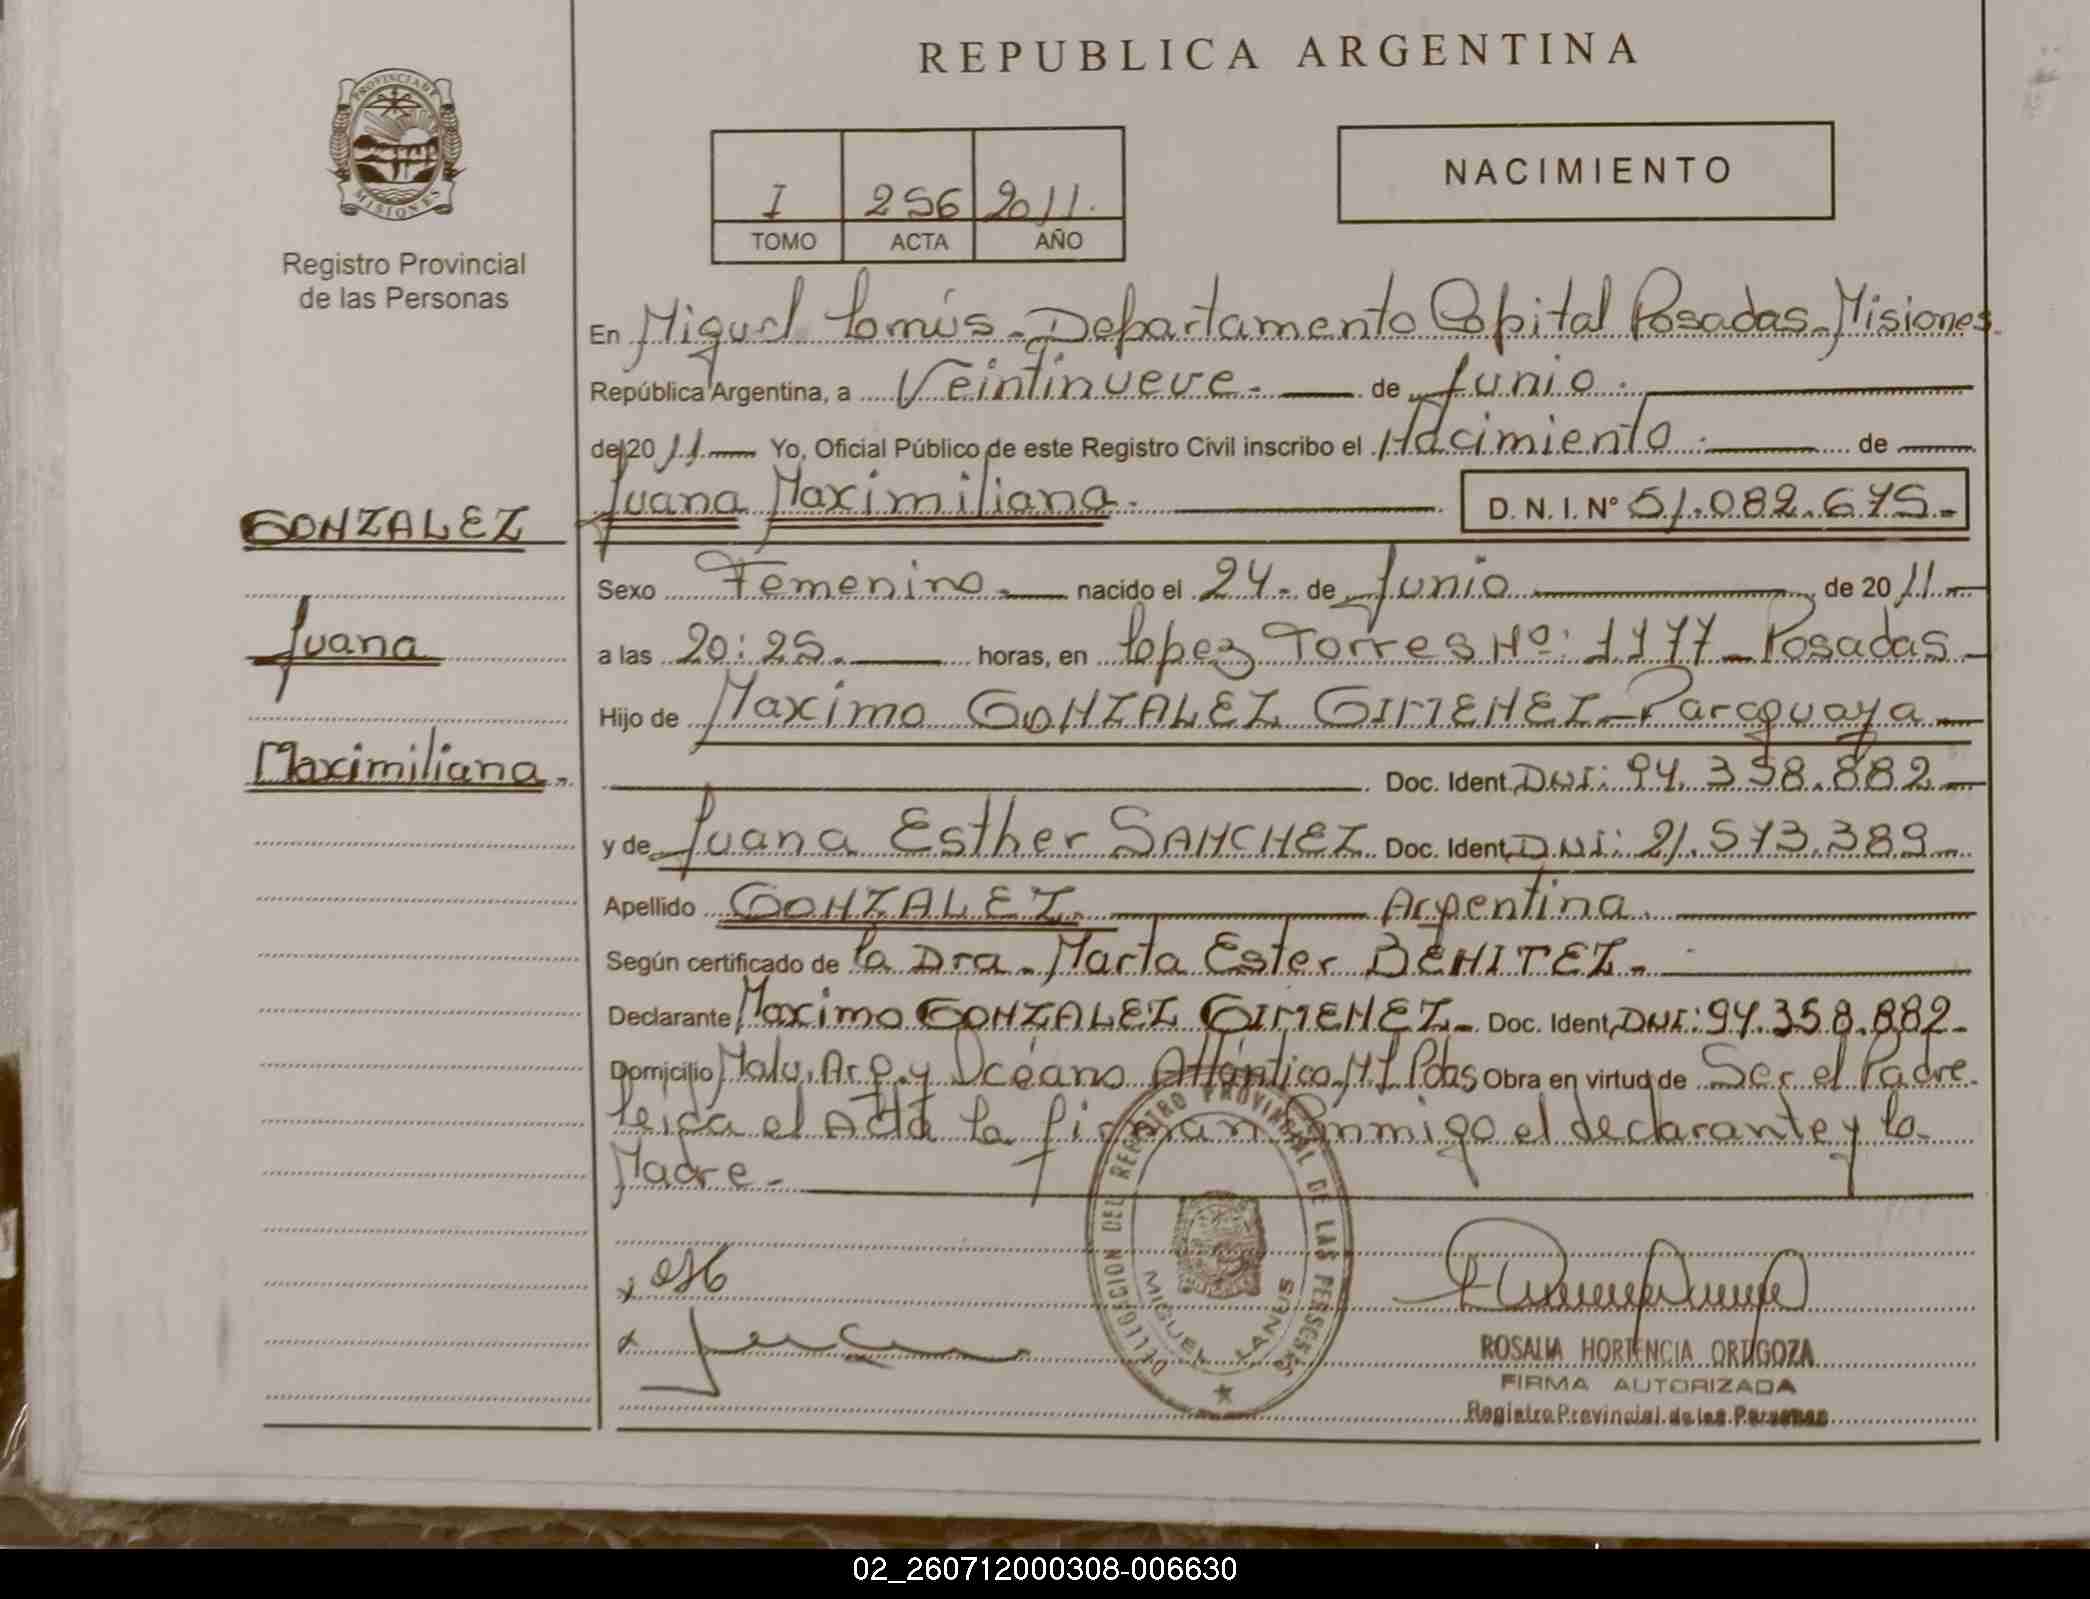 REPUBLICA ARGENTINA
PROVINCIA DE MISIONES
Registro Provincial
de las Personas
I 256 2011.
TOMO ACTA AÑO
NACIMIENTO
En Miguel Lanús - Departamento Capital Posadas - Misiones -
República Argentina, a Veintinueve - de Junio .
del 20 11 Yo, Oficial Público de este Registro Civil inscribo el Nacimiento . de
Juana Maximiliana - D. N. I. N° 51.082.675.-
GONZALEZ
Juana
Maximiliana.-
Sexo Femenino - nacido el 24 - de Junio de 20 11 -
a las 20:25. horas, en Lopez Torres Nº: 1177 - Posadas -
Hijo de Maximo GONZALEZ GIMENEZ - Paraguaya -
Doc. Ident. DNI: 94.358.882 -
y de Juana Esther SANCHEZ Doc. Ident. DNI: 21.573.389 -
Apellido GONZALEZ. Argentina.
Según certificado de la Dra. Marta Ester BENITEZ -
Declarante Maximo GONZALEZ GIMENEZ - Doc. Ident. DNI: 94.358.882 -
Domicilio Malv. Arg. y Océano Atlántico. M L Pdas Obra en virtud de Ser el Padre
leída el Acta la firman Conmigo el declarante y la
Madre -
DELEGACION DEL REGISTRO PROVINCIAL DE LAS PERSONAS
MIGUEL LANUS
ROSALIA HORTENCIA ORTIGOZA
FIRMA AUTORIZADA
Registro Provincial de las Personas
02_260712000308-006630